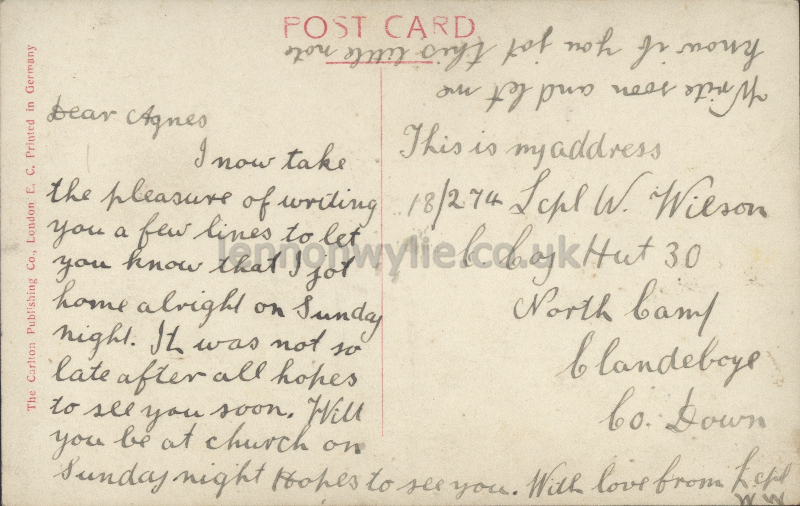 POST CARD
The Carlton Publishing Co., London E. C. Printed in Germany
Dear Agnes
I now take
the pleasure of writing
you a few lines to let
you know that I got
home alright on Sunday
night. It was not so
late after all hopes
to see you soon. Will
you be at church on
Sunday night Hopes to see you. With love from L cpl
W W
This is my address
18/274 Lcpl W. Wilson
C Coy Hut 30
North Camp
Clandeboye
Co. Down
Write soon and let me
know if you got this little note
lennonwylie.co.uk